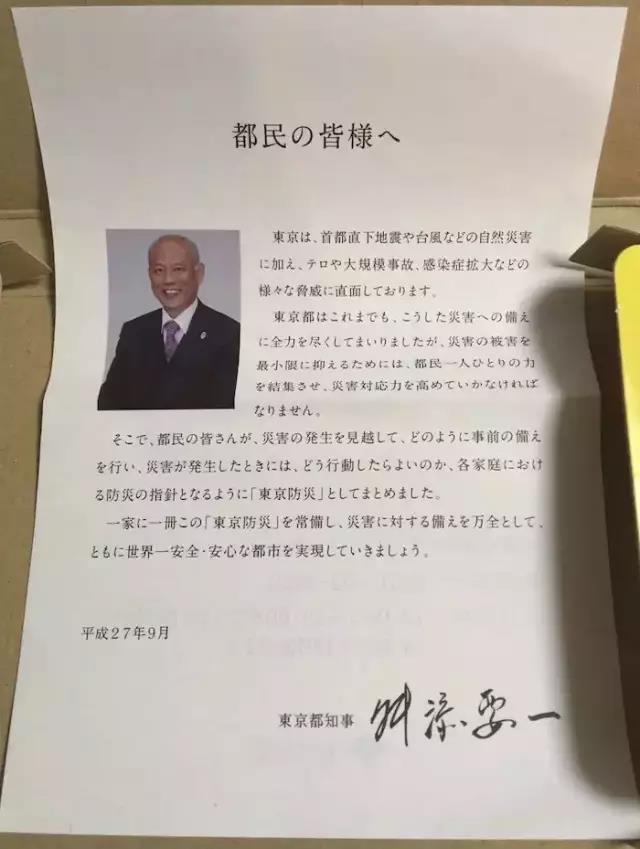 都民の皆様へ
東京は、首都直下地震や台風などの自然災害
に加え、テロや大規模事故、感染症拡大などの
様々な脅威に直面しております。
東京都はこれまでも、こうした災害への備え
に全力を尽くしてまいりましたが、災害の被害を
最小限に抑えるためには、都民一人ひとりの力
を結集させ、災害対応力を高めていかなければ
なりません。
そこで、都民の皆さんが、災害の発生を見越して、どのように事前の備え
を行い、災害が発生したときには、どう行動したらよいのか、各家庭におけ
る防災の指針となるように「東京防災」としてまとめました。
一家に一冊この「東京防災」を常備し、災害に対する備えを万全として、
ともに世界一安全・安心な都市を実現していきましょう。
平成27年9月
東京都知事 舛添要一